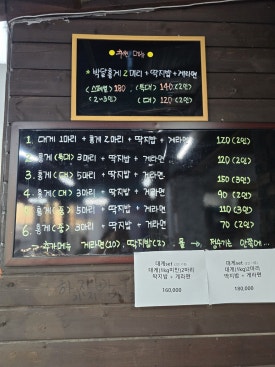 * 박달홍게 2마리 + 딱지밥 + 게라면
(스페셜) 180 , (특대) 140 (2인)
(2~3인) (대) 120 (2인)
1. 대게 1마리 + 홍게 2마리 + 딱지밥 + 게라면 120 (2인)
2. 홍게 (특대) 3마리 + 딱지밥 + 게라면 120 (2인)
3. 홍게 (대) 5마리 + 딱지밥 + 게라면 150 (3인)
4. 홍게 (대) 3마리 + 딱지밥 + 게라면 90 (2인)
5. 홍게 (중) 5마리 + 딱지밥 + 게라면 110 (3인)
6. 홍게 (중) 3마리 + 딱지밥 + 게라면 70 (2인)
추가메뉴 게라면(10), 딱지밥(2), 물 → 정수기는 안쪽에
대게set
대게(1kg미만)2마리
딱지밥 + 게라면
160,000
대게set
대게(1kg)2마리
딱지밥 + 게라면
180,000